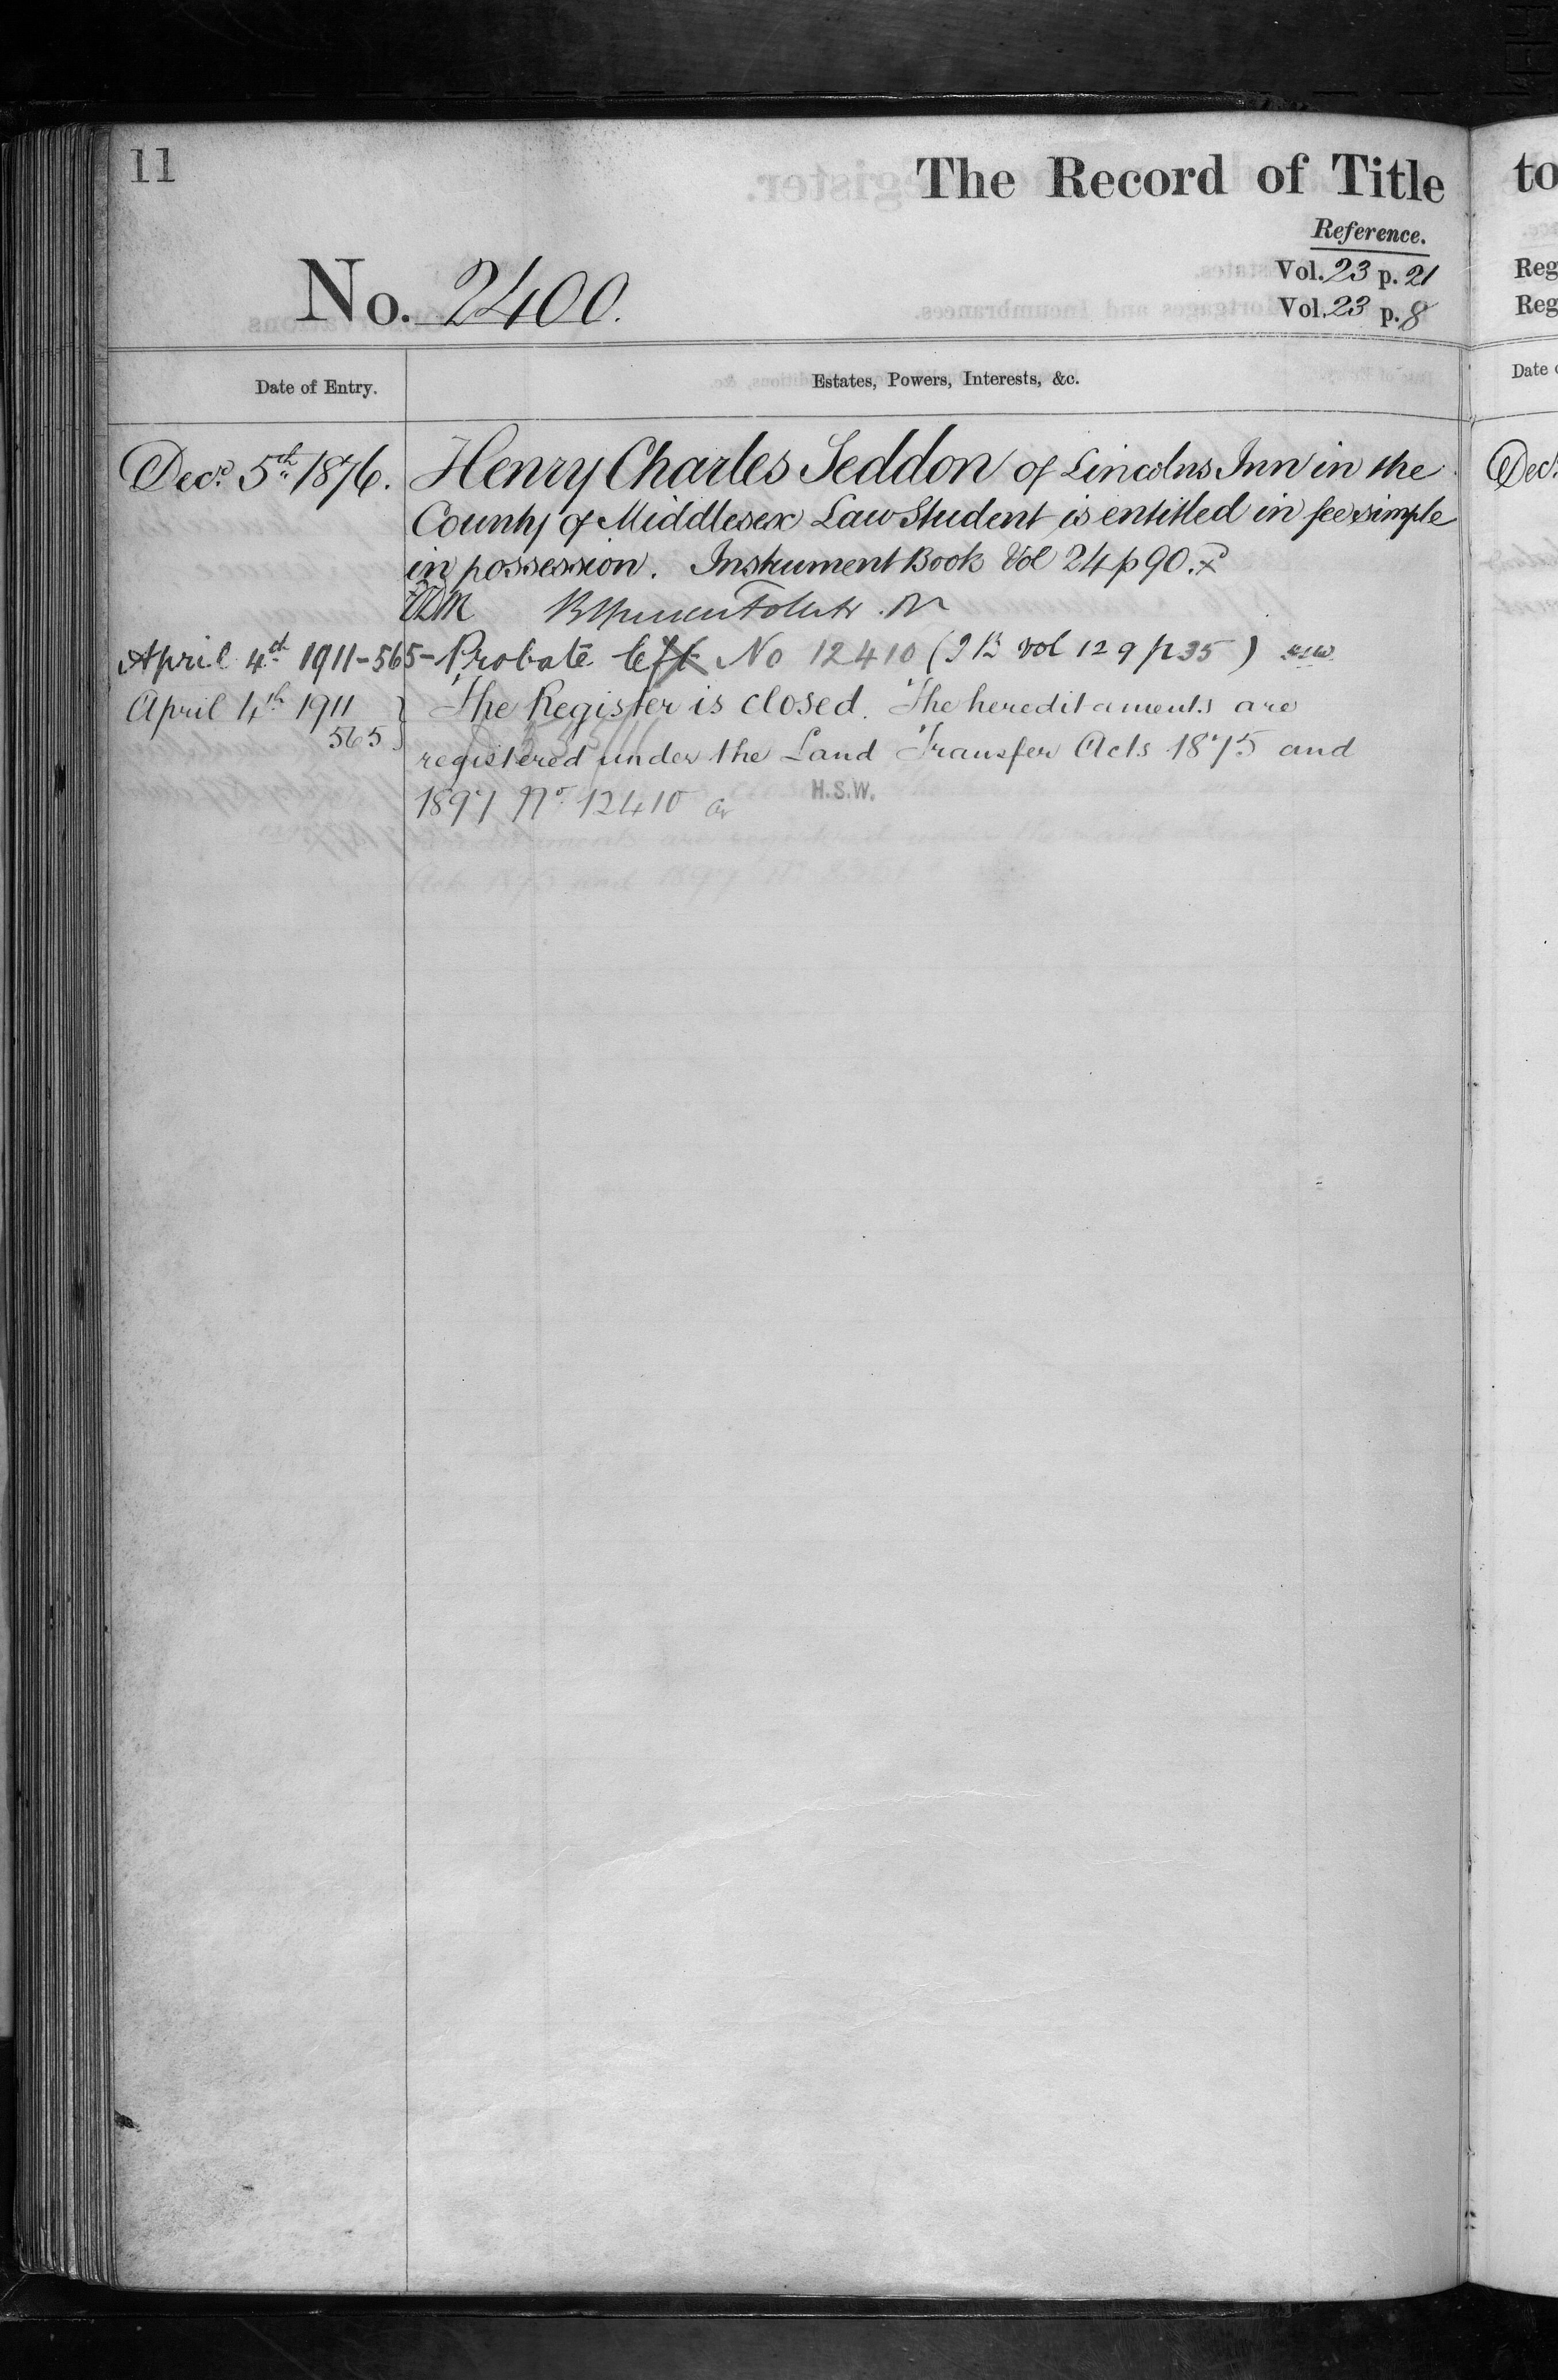 11
The Record of Title
Reference.
No. 2400.
Vol. 23 p. 21
Vol. 23 p. 8
Date of Entry.
Estates, Powers, Interests, &c.
Decr. 5th 1876. Henry Charles Seddon of Lincolns Inn in the
County of Middlesex Law Student is entitled in fee simple
in possession. Instrument Book Vol 24 p 90.
April 4th 1911-565- Probate left No 12410 (I B vol 129 p 35)
April 4th 1911 The Register is closed. The hereditaments are
565 registered under the Land Transfer Acts 1875 and
1897 No. 12410 H.S.W.
to
Reg
Reg
Date
Dec